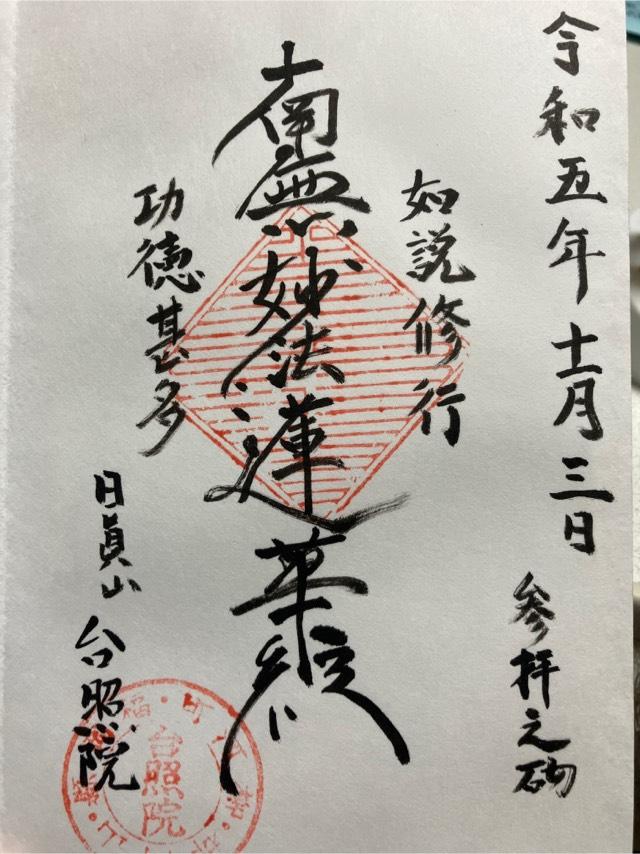 令和五年十一月三日
参拝之砌
如説修行
南無妙法蓮華経
功徳甚多
日眞山 台照院
台照院